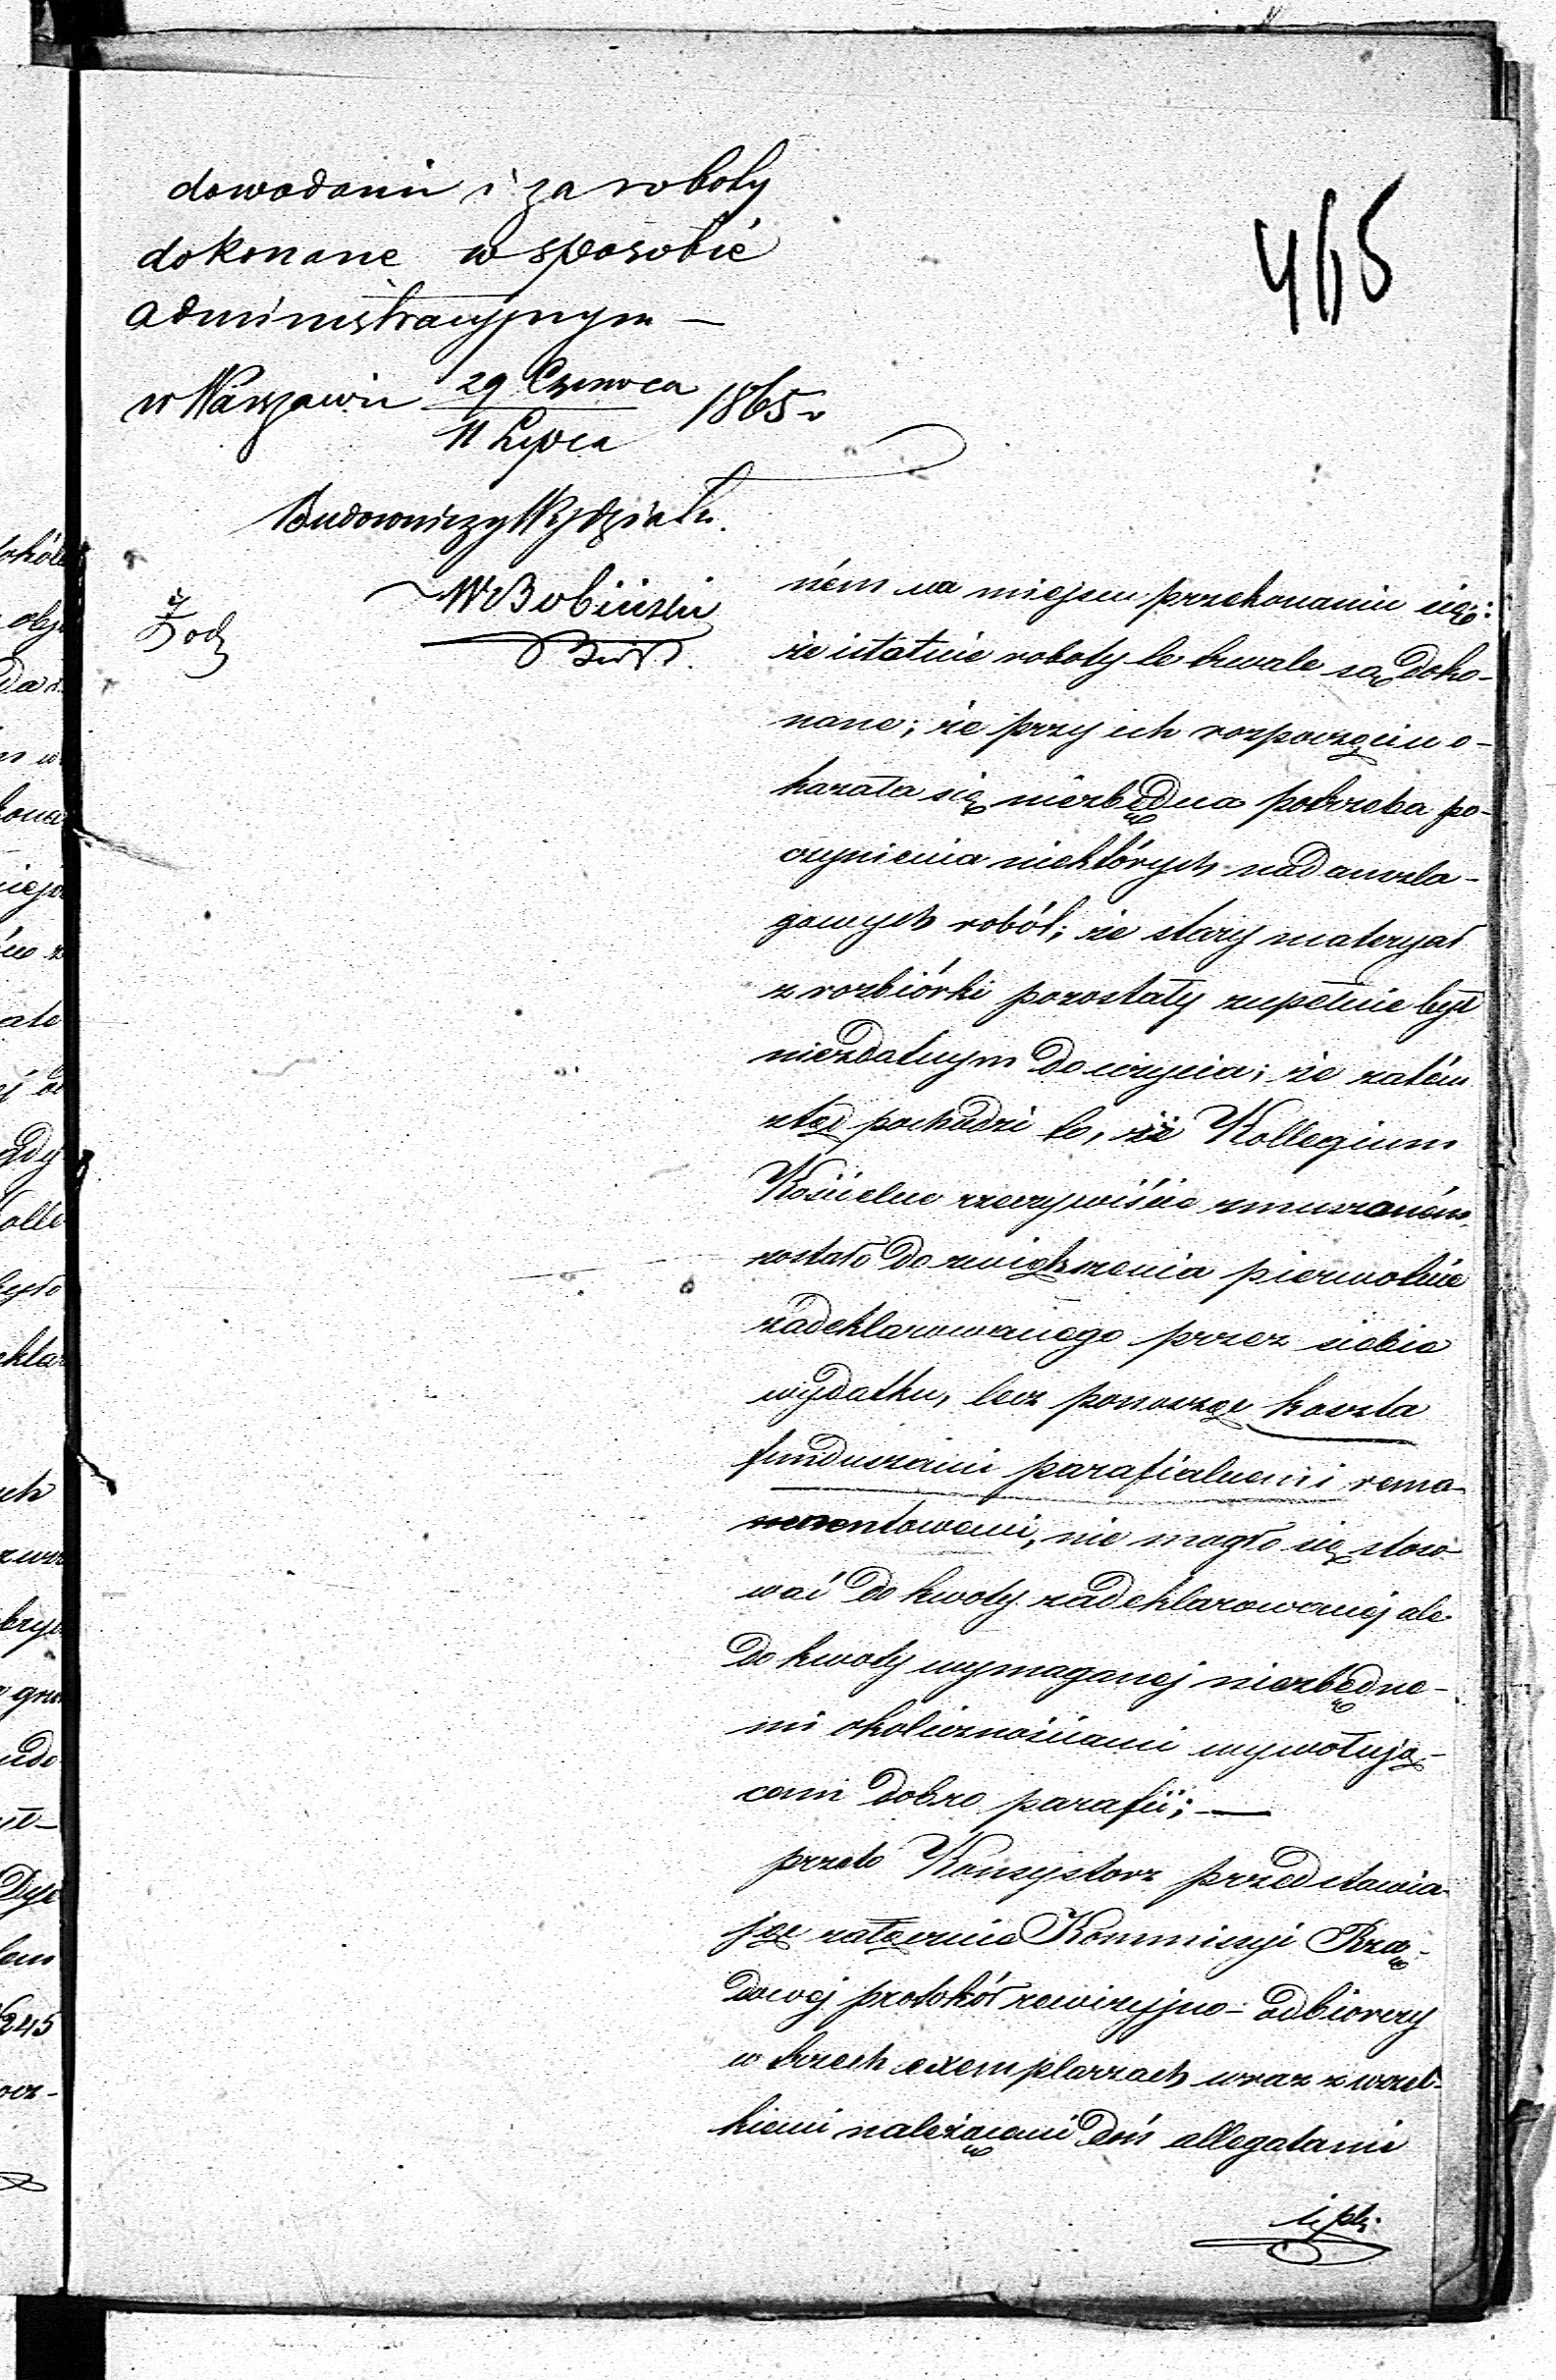 465
dowodami i za roboty
dokonane w sposobie
administracyjnym —
w Warszawie 29 Czerwca / 11 Lipca 1865 r
Budowniczy Wydziału.
W Bobiński
ném na miejscu przekonaniu się:
że istotnie roboty te trwale są doko-
nane; że przy ich rozpoczęciu o-
kazała się niezbędna potrzeba po-
czynienia niektórych nadanszla-
gowych robót; że stary materyał
z rozbiórki pozostały zupełnie był
niezdatnym do użycia; że zatém
ztąd pochodzi to, że Kollegium
Kościelne rzeczywiście zmuszoném
zostało do zwiększenia pierwotnie
zadeklarowanego przez siebie
wydatku, lecz ponosząc koszta
funduszami parafialnemi rema-
nentowemi, nie mogło się stoso-
wać do kwoty zadeklarowanej ale
do kwoty wymaganej niezbędne-
mi okolicznościami wywołują-
cemi dobro parafii; —
przeto Konsystorz przedstawia-
jąc załącznie Kommissyi Rzą-
dowej protokół rewizyjno-odbiorczy
w trzech exemplarzach wraz z wszel-
kiemi należącemi doń allegatami